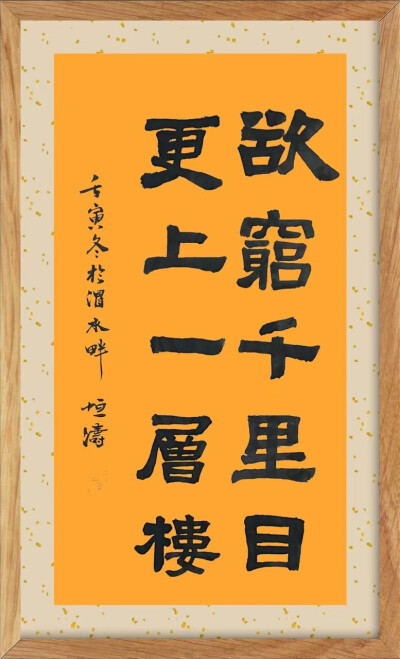 欲窮千里目
更上一層樓
壬寅冬於渭水畔 垣濤